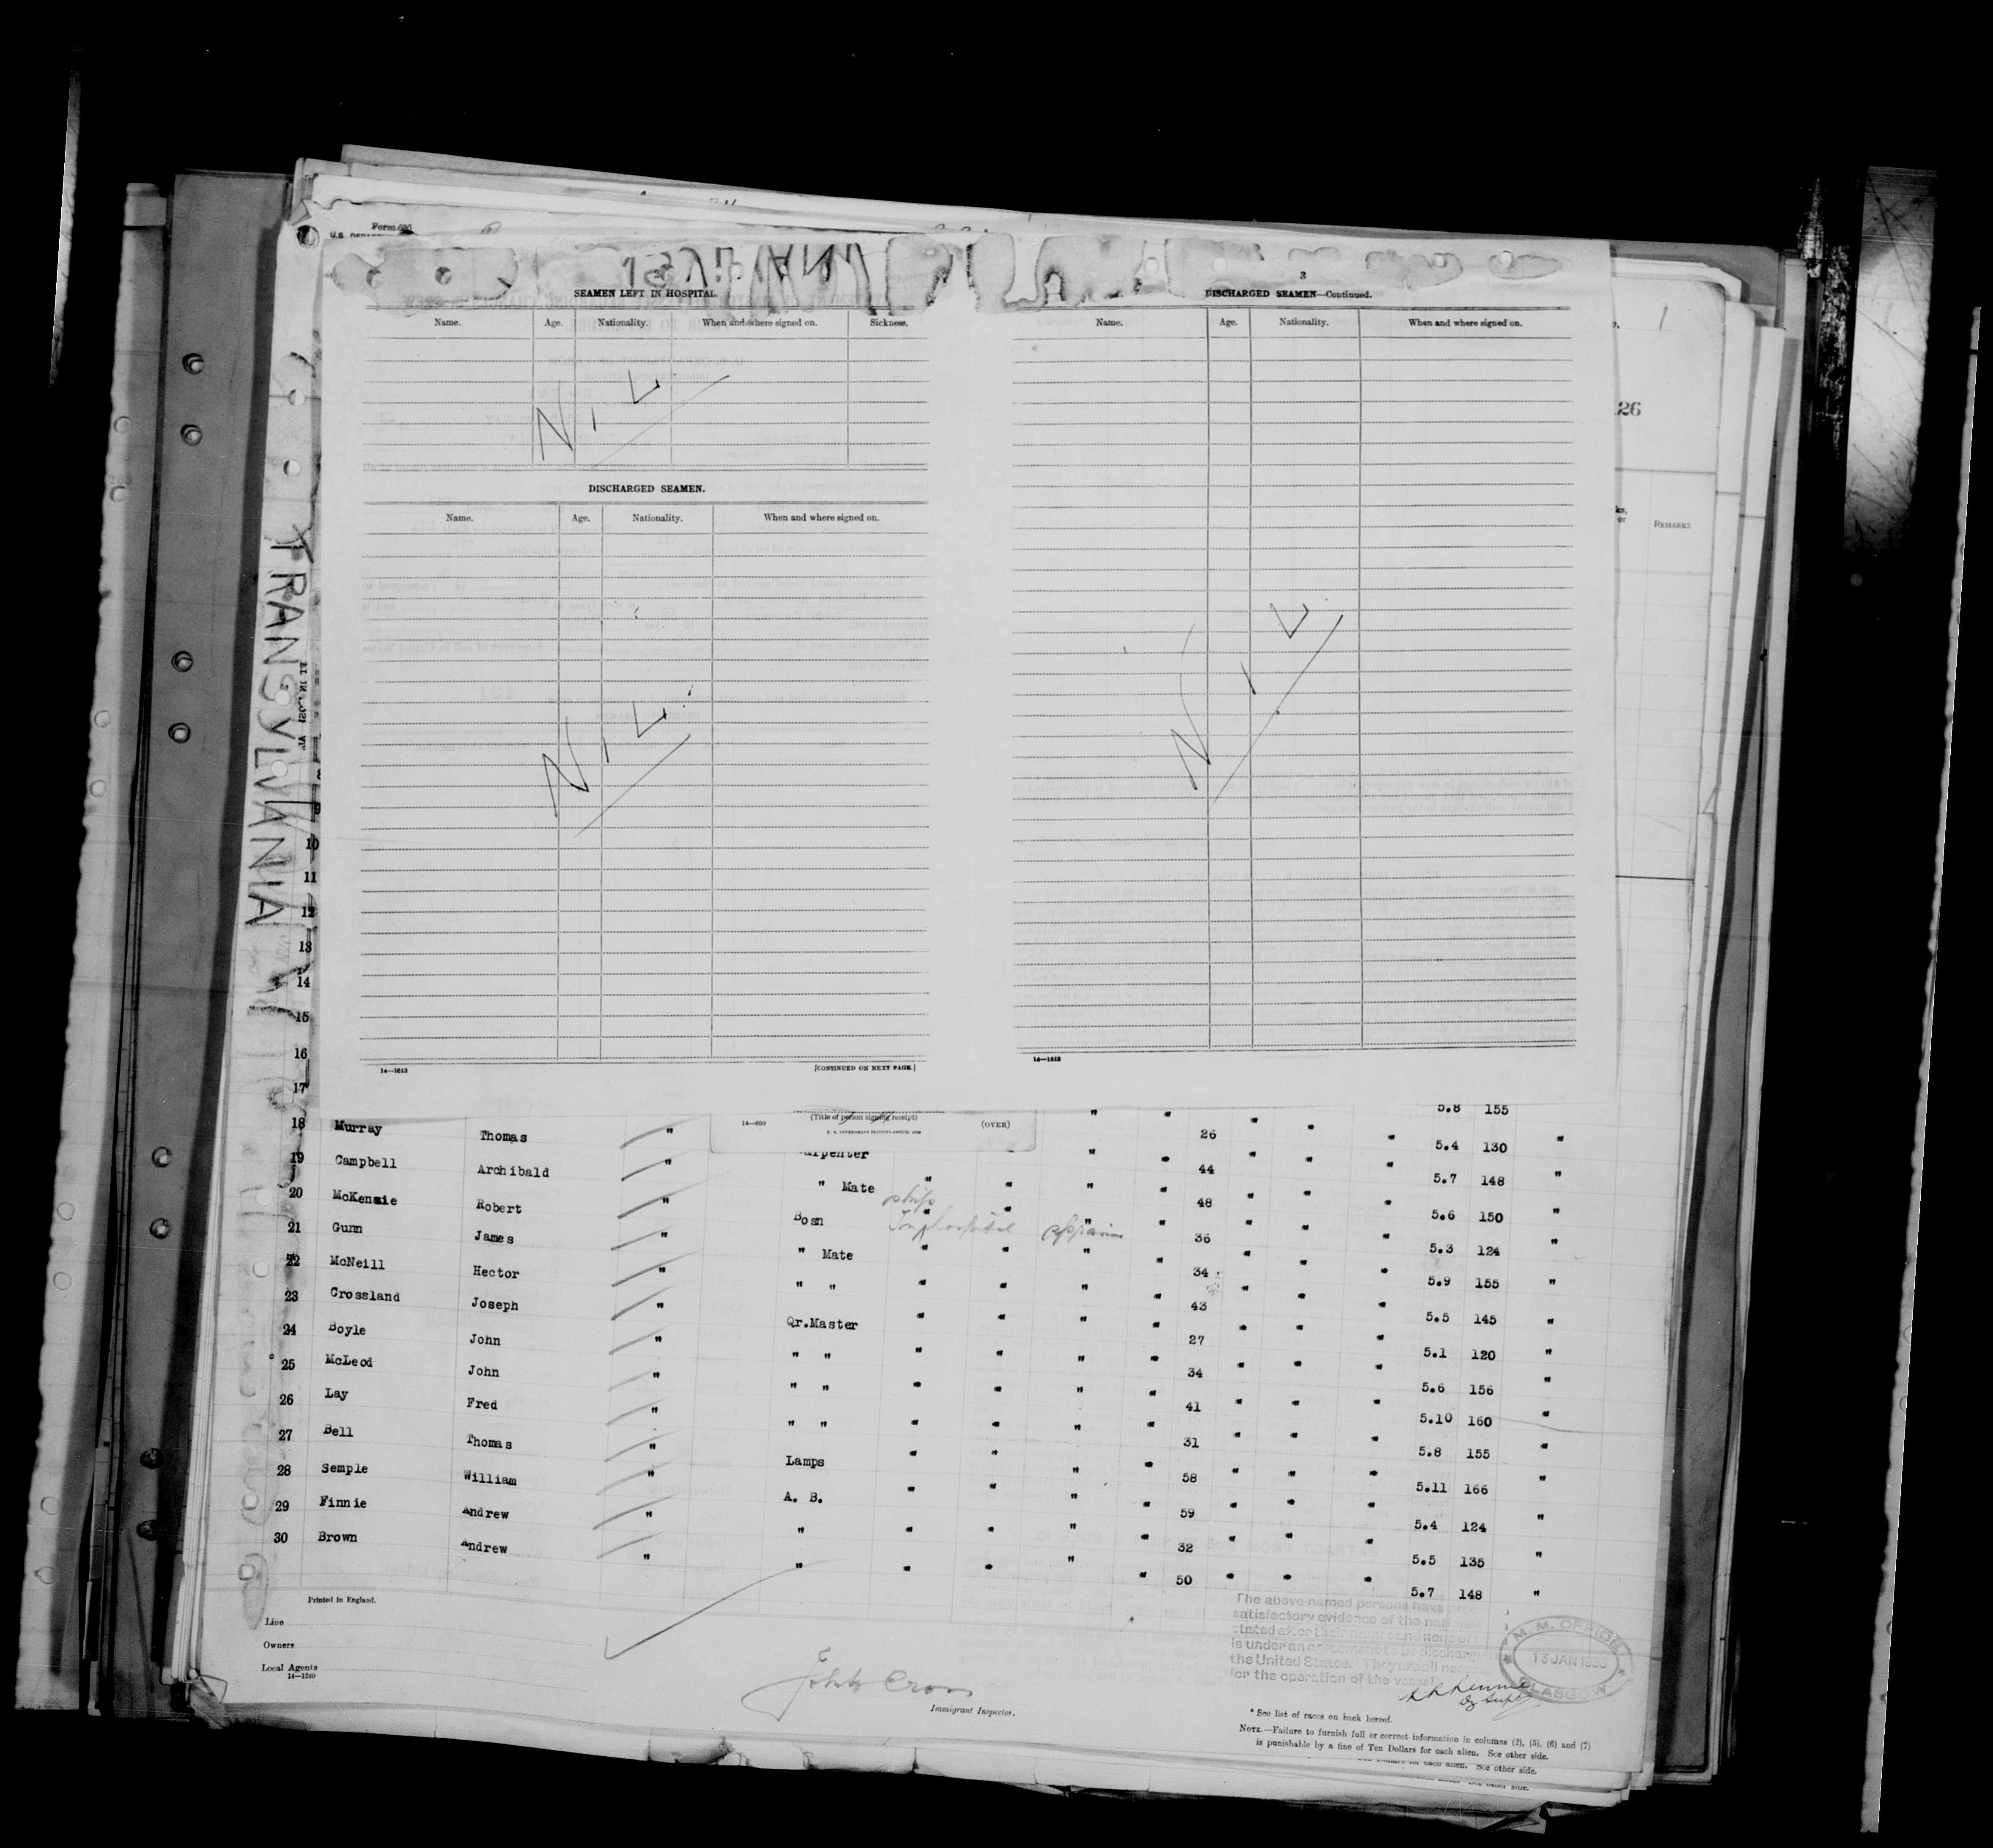 Form 626
3
SEAMEN LEFT IN HOSPITAL.
Name. Age. Nationality. When and where signed on. Sickness.
NIL
DISCHARGED SEAMEN.
Name. Age. Nationality. When and where signed on.
NIL
14—1613 [CONTINUED ON NEXT PAGE.]
DISCHARGED SEAMEN—Continued.
Name. Age. Nationality. When and where signed on.
NIL
14—1613
1
26
REMARKS
TRANSYLVANIA
9
10
11
12
13
14
15
16
17
(Title of person signing receipt)
14—660 (OVER)
" " " " " 5.8 155
18 Murray Thomas " " " 26 " " " 5.4 130 "
19 Campbell Archibald " " Mate " " " " 44 " " " 5.7 148 "
20 McKenzie Robert " Bosn " " " " 48 " " " 5.6 150 "
21 Gunn James " " Mate " " " " 36 " " " 5.3 124 "
22 McNeill Hector " " " " " " " 34 " " " 5.9 155 "
23 Crossland Joseph " Qr.Master " " " " 43 " " " 5.5 145 "
24 Boyle John " " " " " " " 27 " " " 5.1 120 "
25 McLeod John " " " " " " " 34 " " " 5.6 156 "
26 Lay Fred " " " " " " " 41 " " " 5.10 160 "
27 Bell Thomas " Lamps " " " " 31 " " " 5.8 155 "
28 Semple William " A. B. " " " " 58 " " " 5.11 166 "
29 Finnie Andrew " " " " " " 59 " " " 5.4 124 "
30 Brown Andrew " " " " " " 32 " " " 5.5 135 "
50 " " " 5.7 148 "
Printed in England.
Line
Owners
Local Agents
14—1240
John Cross
Immigrant Inspector.
The above named persons have
satisfactory evidence of the
stated after their names and none of
is under an agreement to be discharg
the United States. They are all
for the operation of the vessel
M. M. OFFICE
13 JAN
GLASGOW
* See list of races on back hereof.
NOTE.—Failure to furnish full or correct information in columns (2), (5), (6) and (7)
is punishable by a fine of Ten Dollars for each alien. See other side.
See other side.